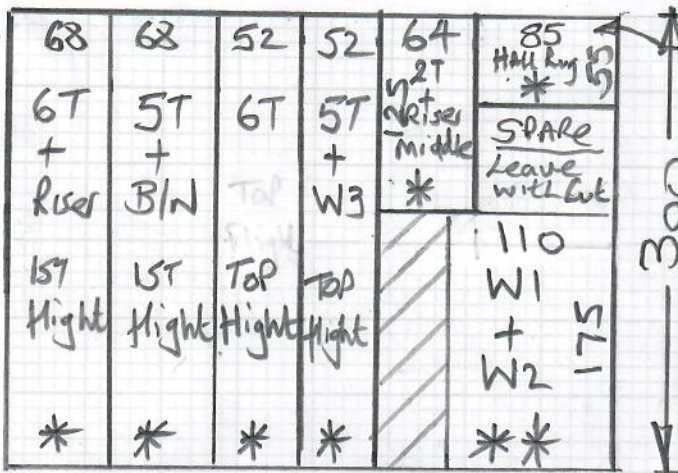 68
6T
+
Riser
1ST
Hight
*
68
5T
+
B/N
1ST
Hight
*
52
6T
TOP
Hight
*
52
5T
+
W3
TOP
Hight
*
64
2T
+
Riser
middle
*
85
Hall Rug
*
55
SPARE
Leave
with Cut
110
W1
+
W2
175
**
300